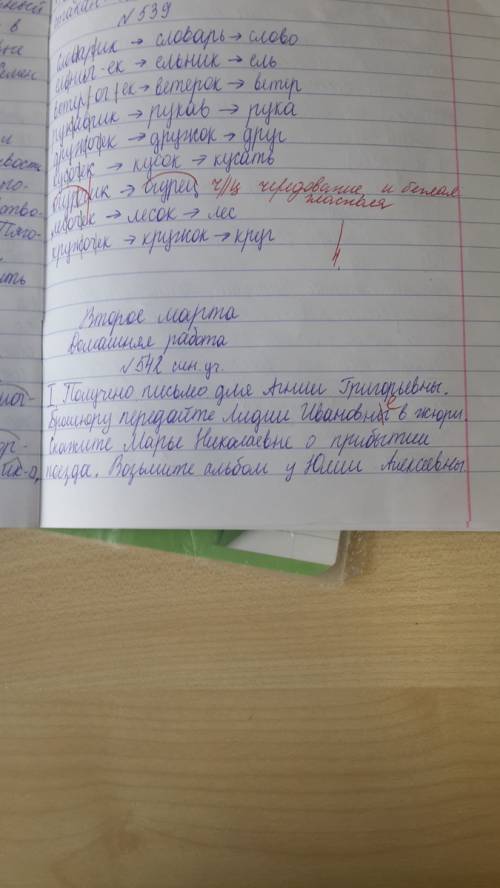 №539
словарик → словарь → слово
ельнич-ек → ельник → ель
ветер|оч|ек → ветерок → ветер
рукавчик → рукав → рука
дружочек → дружок → друг
кусочек → кусок → кусать
огурчик → огурец ч/ц чередование и беглая гласная
лесочек → лесок → лес
кружочек → кружок → круг
4
Второе марта
Домашняя работа
№542 син.уч.
I Получено письмо для Агнии Григорьевны.
Брошюру передайте Лидии Ивановны в жюри.
е
Скажите Марье Николаевне о прибытии
поезда. Возьмите альбом у Юлии Алексеевны